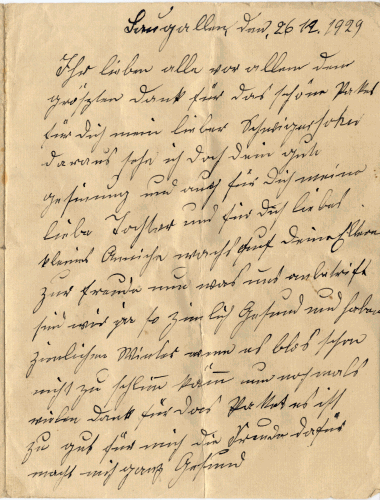 Saugallen, den, 26 12. 1929
Ihr lieben alle vor allem den
grösten Dank für das schöne Paket
für Dich mein lieber Schwigersohn
daraus sehe ich doch dein gute
gesinung und auch für Dich meine
liebe Tochter und für dich liebes
kleines wachs auf deine Eltern
zur Freude nun was uns anbetrift
sind wir ja so zimlich Gesund und haben
zimlichen Winter wenn es blos schon
nicht zu schlim käm nun nochmals
vielen Dank für das Paket es ist
zu gut für mich die Freude dafür
macht mich ganz Gesund